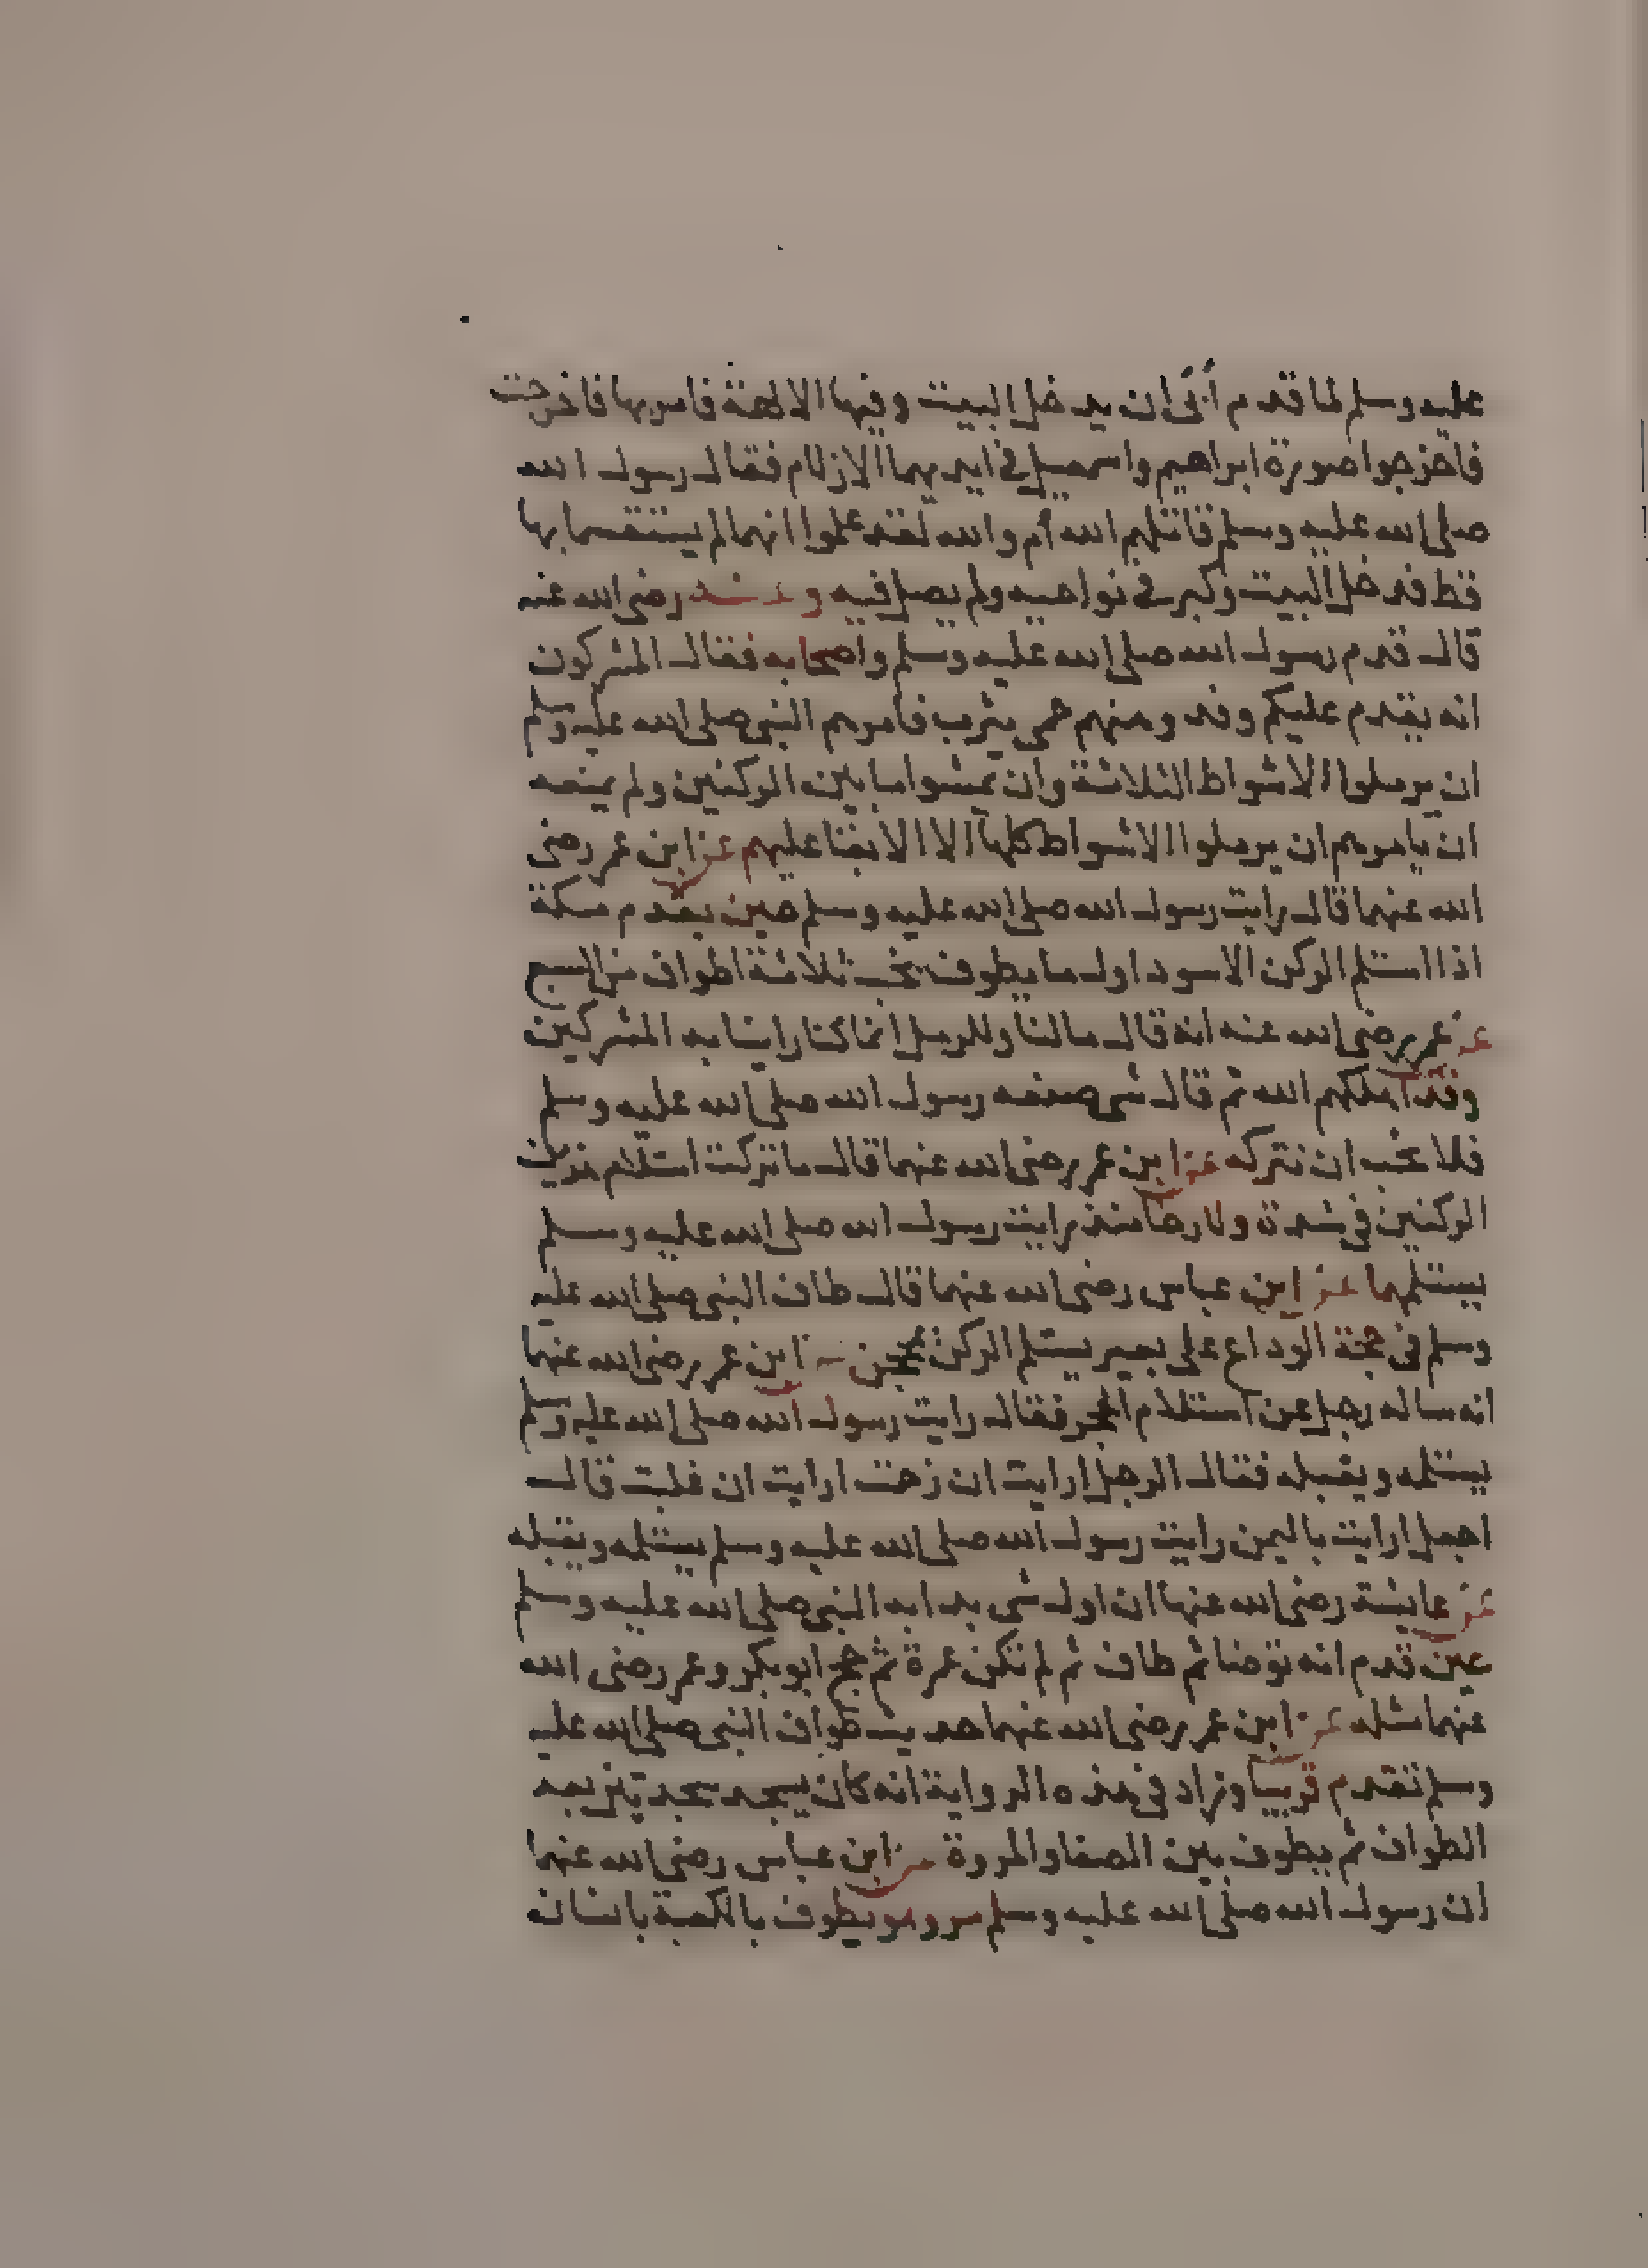 عليه وسلم لما قدم أبى ان يدخل البيت وفيها الالهة فامر بها فاخرجت
فاخرجوا صورة ابراهيم واسمعيل في ايديهما الازلام فقال رسول الله
صلى الله عليه وسلم قاتلهم الله أم والله لقد علموا انهما لم يستقسما بها
قط فدخل البيت وكبر في نواحيه ولم يصل فيه وعنه رضى الله عنه
قال قدم رسول الله صلى الله عليه وسلم واصحابه فقال المشركون
انه يقدم عليكم وفد وهنهم حمى يثرب فامرهم النبي صلى الله عليه وسلم
ان يرملوا الاشواط الثلاثة وان يمشوا ما بين الركنين ولم يمنعه
ان يامرهم ان يرملوا الاشواط كلها الا الابقا عليهم عن ابن عمر رضى
الله عنهما قال رايت رسول الله صلى الله عليه وسلم حين يقدم مكة
اذا استلم الركن الاسود اول ما يطوف يخب ثلاثة اطواف من السبع
عن عمر رضى الله عنه انه قال مالنا وللرمل انما كنا راينا به المشركين
وقد اهلكهم الله ثم قال شى صنعه رسول الله صلى الله عليه وسلم
فلا نحب ان نتركه عن ابن عمر رضى الله عنهما قال ما تركت استلام هذين
الركنين في شدة ولا رخا منذ رايت رسول الله صلى الله عليه وسلم
يستلمهما عن ابن عباس رضى الله عنهما قال طاف النبي صلى الله عليه
وسلم في حجة الوداع على بعير يستلم الركن بمحجن عن ابن عمر رضى الله عنهما
انه ساله رجل عن استلام الحجر فقال رايت رسول الله صلى الله عليه وسلم
يستلمه ويقبله فقال الرجل ارايت ان زحمت ارايت ان غلبت قال
اجعل ارايت باليمن رايت رسول الله صلى الله عليه وسلم يستلمه ويقبله
عن عايشة رضى الله عنها ان اول شى بدا به النبي صلى الله عليه وسلم
حين قدم انه توضا ثم طاف ثم لم تكن عمرة ثم حج ابو بكر وعمر رضى الله
عنهما مثله عن ابن عمر رضى الله عنهما حديث طواف النبي صلى الله عليه
وسلم تقدم قريبا وزاد في هذه الرواية انه كان يسجد سجدتين بعد
الطواف ثم يطوف بين الصفا والمروة عن ابن عباس رضى الله عنهما
ان رسول الله صلى الله عليه وسلم مر وهو يطوف بالكعبة بانسان